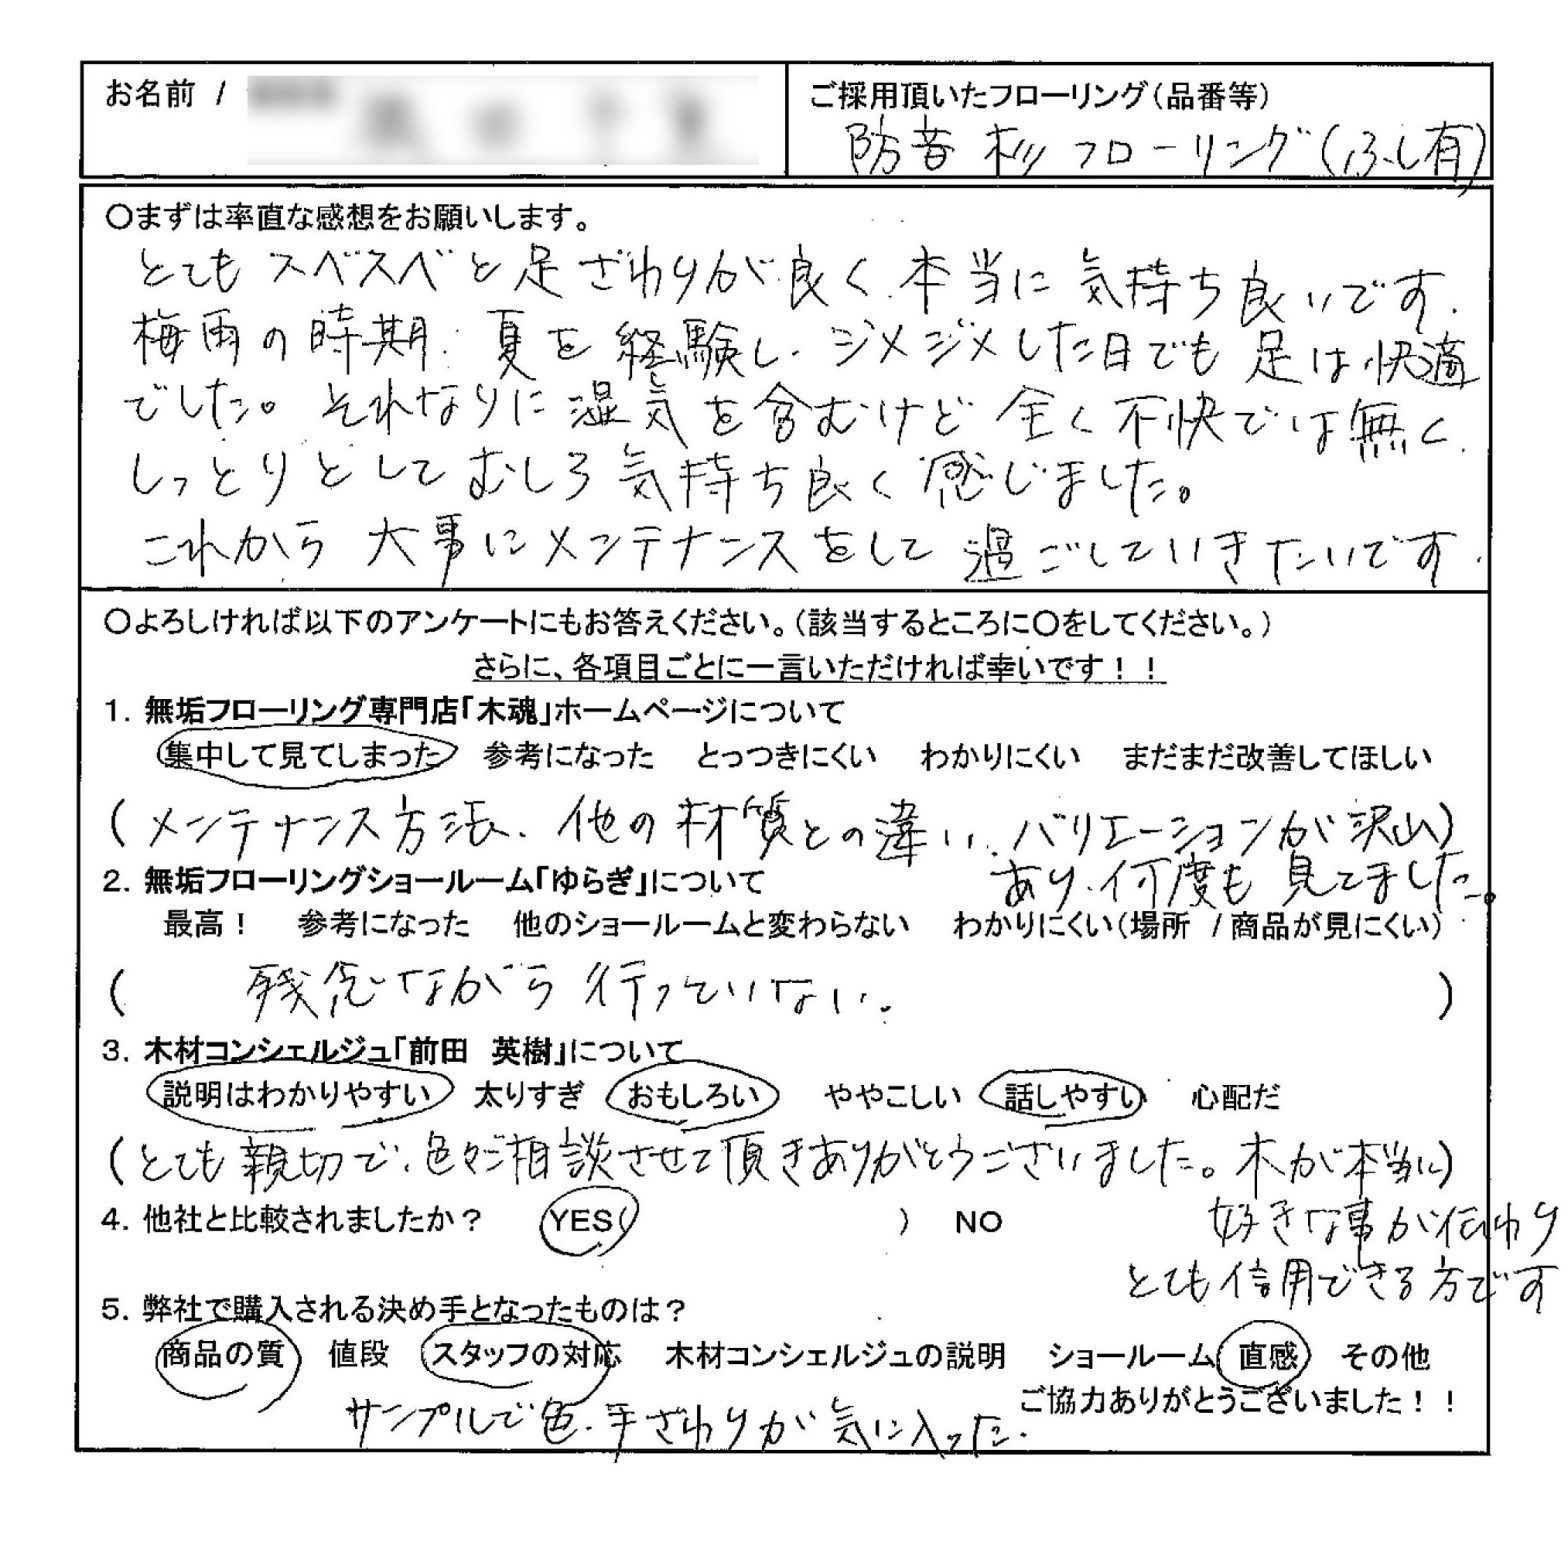 お名前 /
ご採用頂いたフローリング(品番等)
防音 杉 フローリング(ふし有)
○まずは率直な感想をお願いします。
とてもスベスベと足ざわりが良く、本当に気持ち良いです.
梅雨の時期、夏を経験し、ジメジメした日でも足は快適
でした。それなりに湿気を含むけど全く不快では無く、
しっとりとしてむしろ気持ち良く感じました。
これから大事にメンテナンスをして過ごしていきたいです.
○よろしければ以下のアンケートにもお答えください。(該当するところに○をしてください。)
さらに、各項目ごとに一言いただければ幸いです!!
1. 無垢フローリング専門店「木魂」ホームページについて
集中して見てしまった 参考になった とっつきにくい わかりにくい まだまだ改善してほしい
(メンテナンス方法、他の材質との違い、バリエーションが沢山)
あり、何度も見てました。
2. 無垢フローリングショールーム「ゆらぎ」について
最高! 参考になった 他のショールームと変わらない わかりにくい(場所 / 商品が見にくい)
( 残念ながら行っていない. )
3. 木材コンシェルジュ「前田 英樹」について
説明はわかりやすい 太りすぎ おもしろい ややこしい 話しやすい 心配だ
(とても親切で、色々ご相談させて頂きありがとうございました。木が本当に)
好きな事が伝わり
とても信用できる方です
4. 他社と比較されましたか? YES( ) NO
5. 弊社で購入される決め手となったものは?
商品の質 値段 スタッフの対応 木材コンシェルジュの説明 ショールーム 直感 その他
ご協力ありがとうございました!!
サンプルで色、手ざわりが気に入った.